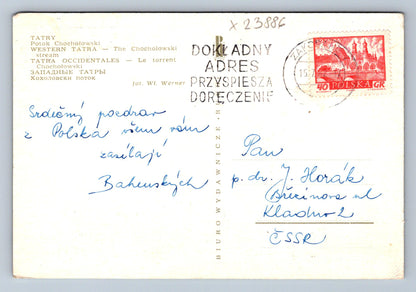 x 23886
TATRY
Potok Chochołowski
WESTERN TATRA — The Chochołowski
stream
TATRA OCCIDENTALES — Le torrent
Chochołowski
ЗАПАДНЫЕ ТАТРЫ
Хохоловски поток
fot. Wł. Werner
DOKŁADNY
ADRES
PRZYSPIESZA
DORĘCZENIE
40 POLSKA GR
BIURO WYDAWNICZE
Srdečný pozdrav
z Polska všem vám
zasílají
Pan
p. dr. J. Horák
Březinova ul
Kladno 2
ČSSR